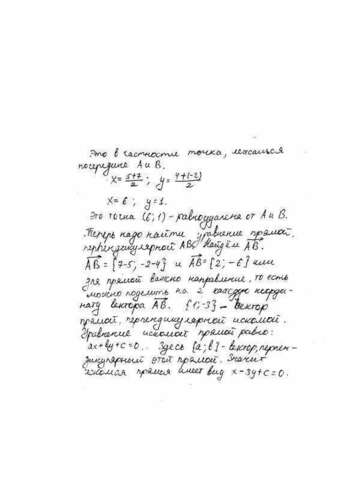 Это в частности точка, лежащая
посередине A и B.
x = 5+7/2 ; y = 4+(-2)/2
x = 6 ; y = 1.
Это точка (6; 1) - равноудалена от A и B.
Теперь надо найти уравнение прямой,
перпендикулярной AB. Найдём AB.
AB = {7-5; -2-4} и AB = {2; -6} или
для прямой важно направление, то есть
можно поделить на 2 каждую коорди-
нату вектора AB. {1; -3} - вектор
прямой, перпендикулярной искомой.
Уравнение искомой прямой равно:
ax+by+c=0. Здесь {a; b} - вектор, перпен-
дикулярный этой прямой. Значит
искомая прямая имеет вид x-3y+c=0.